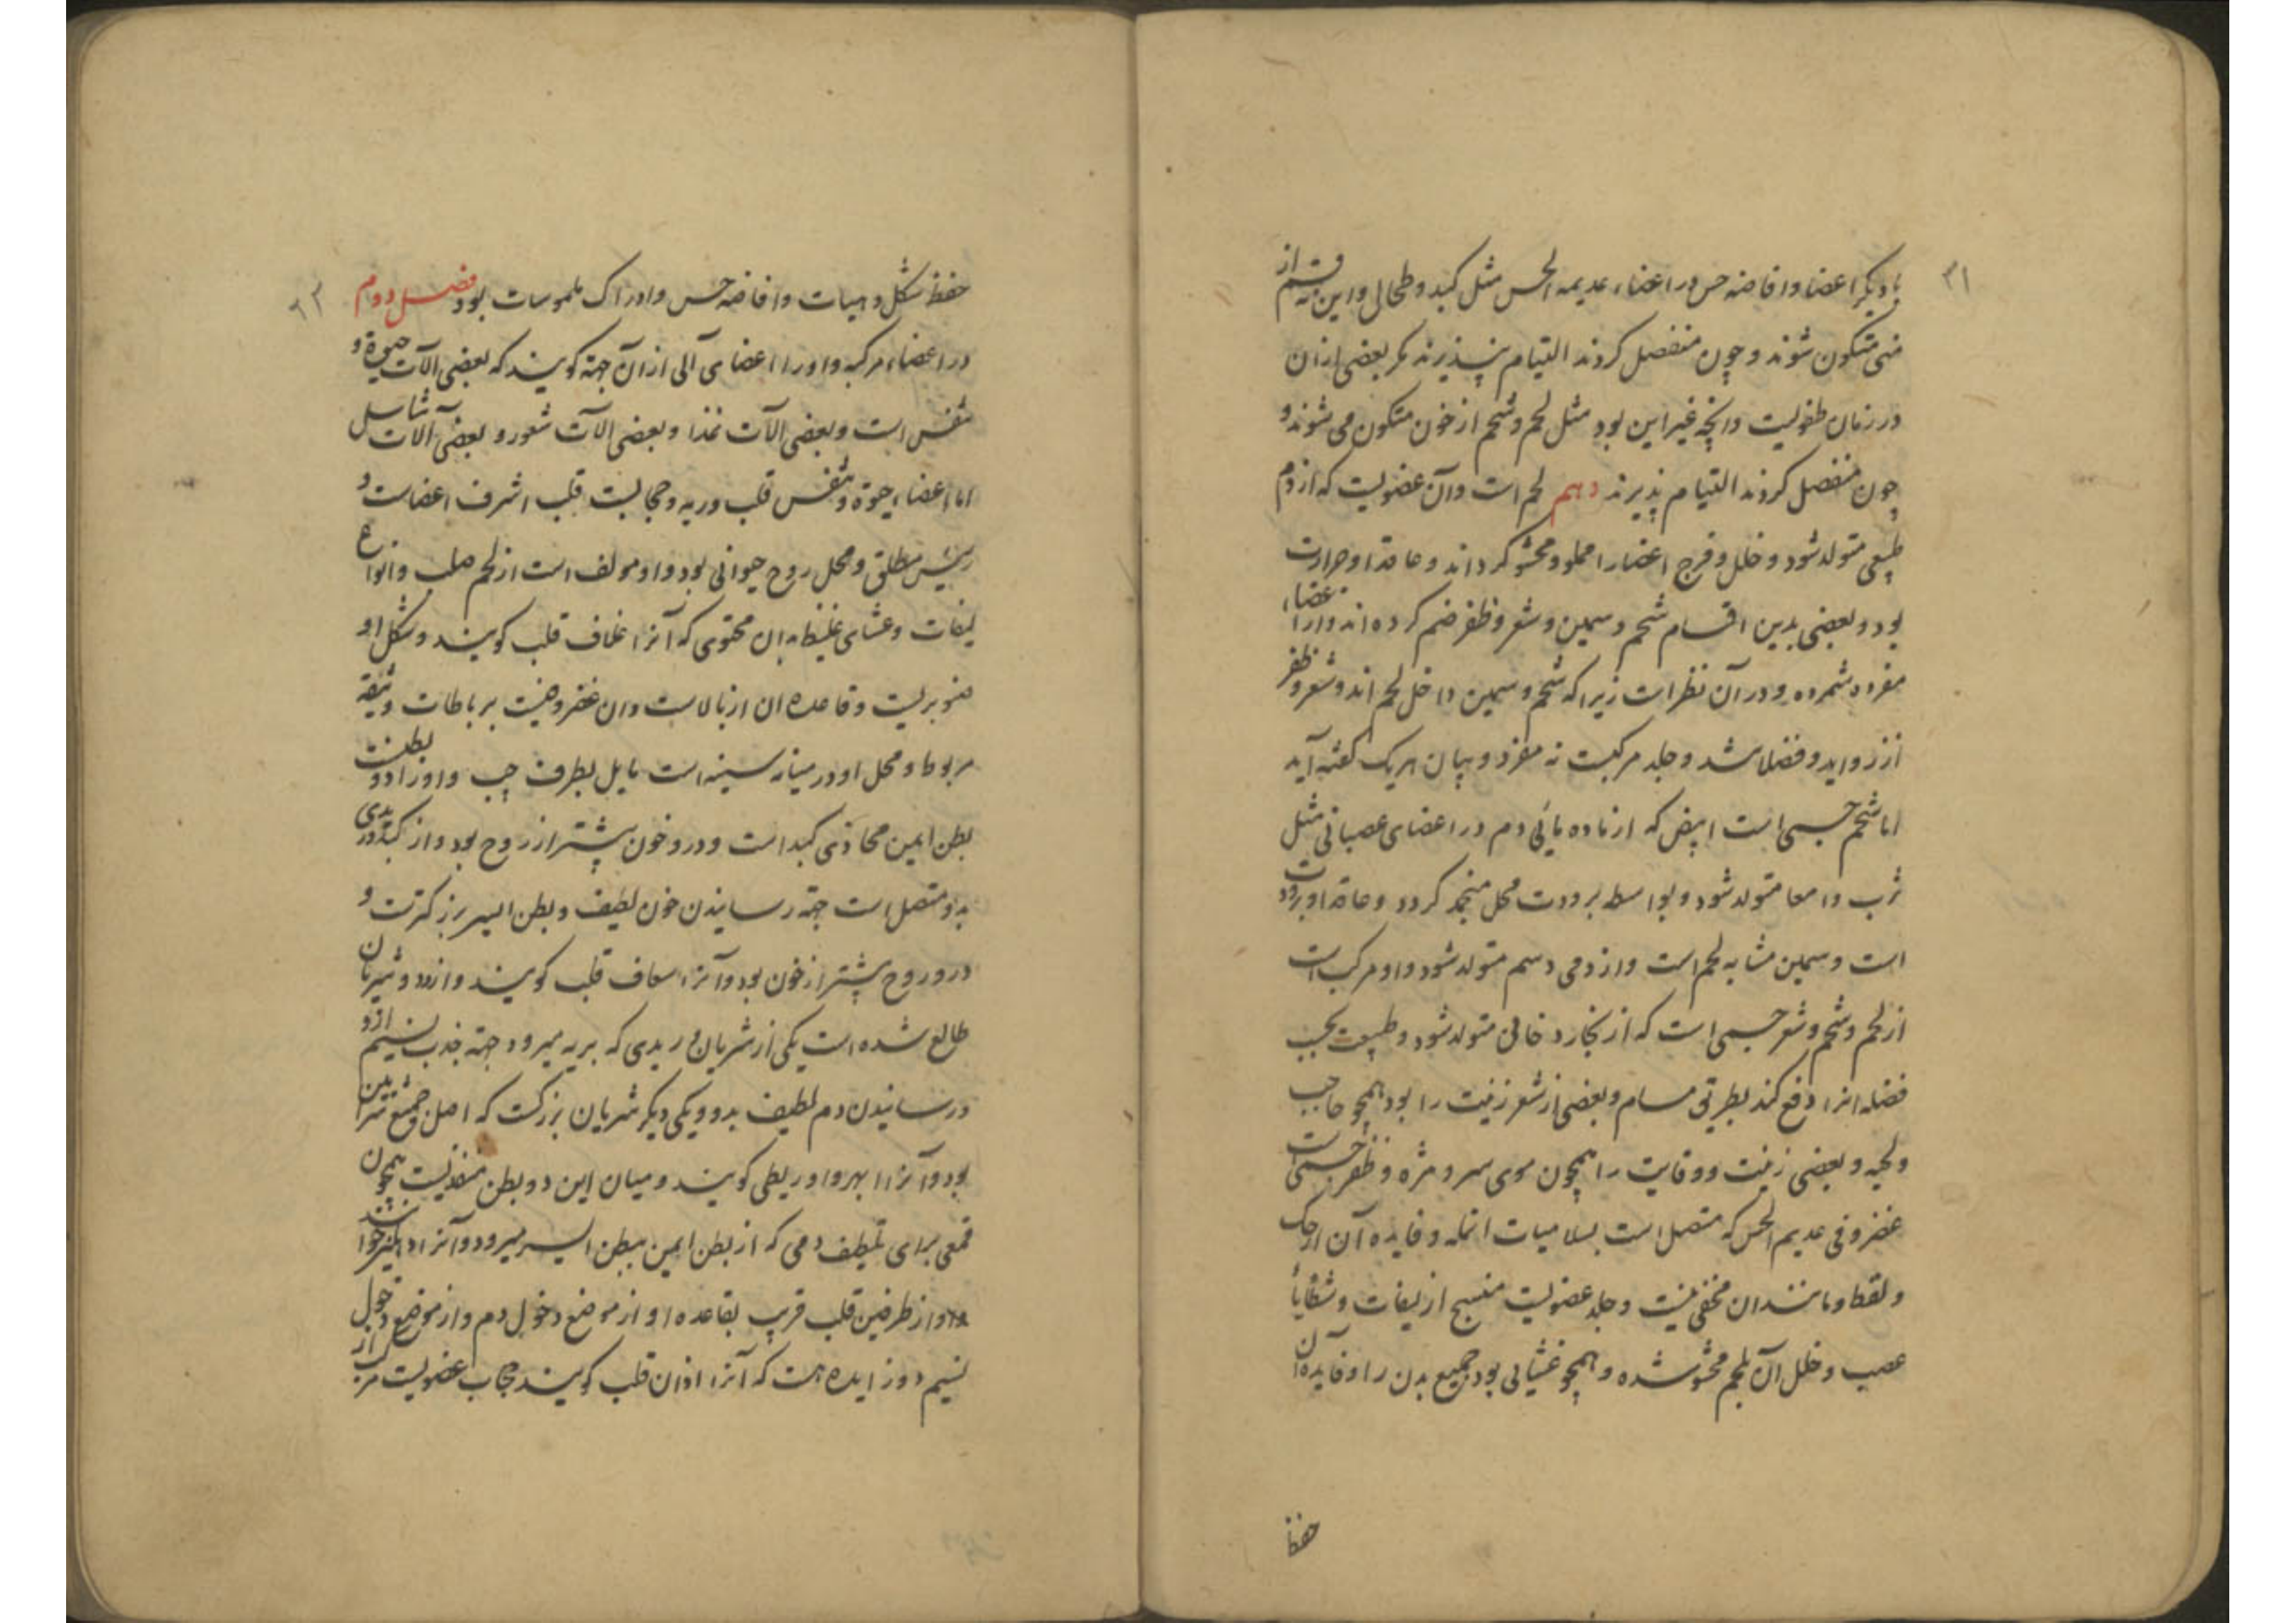 ۳۱
با دیکر اعضا و افاضه حس در اعضاء عدیمه الحس مثل کبد و طحال و این نه قسم از
منی متکون شوند و چون منفصل کردند التیام نپذیرند مکر بعضی از ان
در زمان طفولیت و انچه غیر این بود مثل لحم و شحم از خون متکون می شوند و
چون منفصل کردند التیام پذیرند دهم لحم است و آن عضویست که از دم
طبیعی متولد شود و خلل و فرج اعضا را مملو و محشو کرداند و عاقد او حرارت
بود و بعضی بدین اقسام شحم و سمین و شعر و ظفر ضم کرده اند و از اعضاء
مفرده شمرده و در آن نظر است زیرا که شحم و سمین داخل لحم اند و شعر و ظفر
از زواید و فضلا شد و جلد مرکبست نه مفرد و بیان هریک کفته آید
اما شحم جسمی است ابیض که از ماده مائی دم در اعضای عصبانی مثل
ثرب و امعا متولد شود و بواسطه برودت محل منجمد کردد و عاقد او برودت
است و سمین مشابه لحم است و از دمی دسم متولد شود و او مرکب است
از لحم و شحم و شعر جسمی است که از بخار دخانی متولد شود و طبیعت بحسب
فضله انرا دفع کند بطریق مسام و بعضی از شعر زینت را بود همچو حاجب
و لحیه و بعضی زینت و وقایت را همچون موی سر و مژه و ظفر جسمی است
غضروفی عدیم الحس که متصل است بسلامیات انمله و فایده آن از حک
و لقط و مانند ان مخفی نیست و جلد عضویست منسج از لیفات و شظایا
عصب و خلل آن بلحم محشو شده و همچو غشائی بود جمیع بدن را و فایده آن
حفظ
۶۲
حفظ شکل و هیات و افاضه حس و ادراک ملموسات بود فصل دوم
در اعضاء مرکبه و او را اعضای آلی از آن جهة کویند که بعضی آلات حیوة و
تنفس است و بعضی آلات غذا و بعضی آلات شعور و بعضی آلات تناسل
اما اعضاء حیوة و تنفس قلب و ریه و حجابست قلب اشرف اعضاست و
رئیس مطلق و محل روح حیوانی بود و او مولف است از لحم صلب و انواع
لیفات و غشای غلیظ به ان محتوی که آنرا غلاف قلب کویند و شکل او
صنوبریست و قاعده ان از بالاست و ان غضروفیست برباطات وثیقه
مربوط و محل او در میانه سینه است مایل بطرف چپ و او را دو بطنست
بطن ایمن محاذی کبد است و درو خون بیشتر از روح بود و از کبد وریدی
بدو متصل است جهة رسانیدن خون لطیف و بطن ایسر بزرکترست و
درو روح بیشتر از خون بود و آنرا سعاف قلب کویند و ازو دو شریان
طالع شده است یکی از شریان وریدی که بریه میرود جهة جذب نسیم ازو
و رسانیدن دم لطیف بدو و یکی دیکر شریان بزرکست که اصل جمیع شرایین
بود و آنرا ابهر و اوریطی کویند و میان این دو بطن منفذیست همچون
قمعی برای تلطیف دمی که از بطن ایمن ببطن ایسر میرود و آنرا دهلیز خوانند
و از طرفین قلب قریب بقاعده او از موضع دخول دم و از موضع دخول
نسیم دو زایده هست که آنرا اذان قلب کویند حجاب عضویست مرکب از